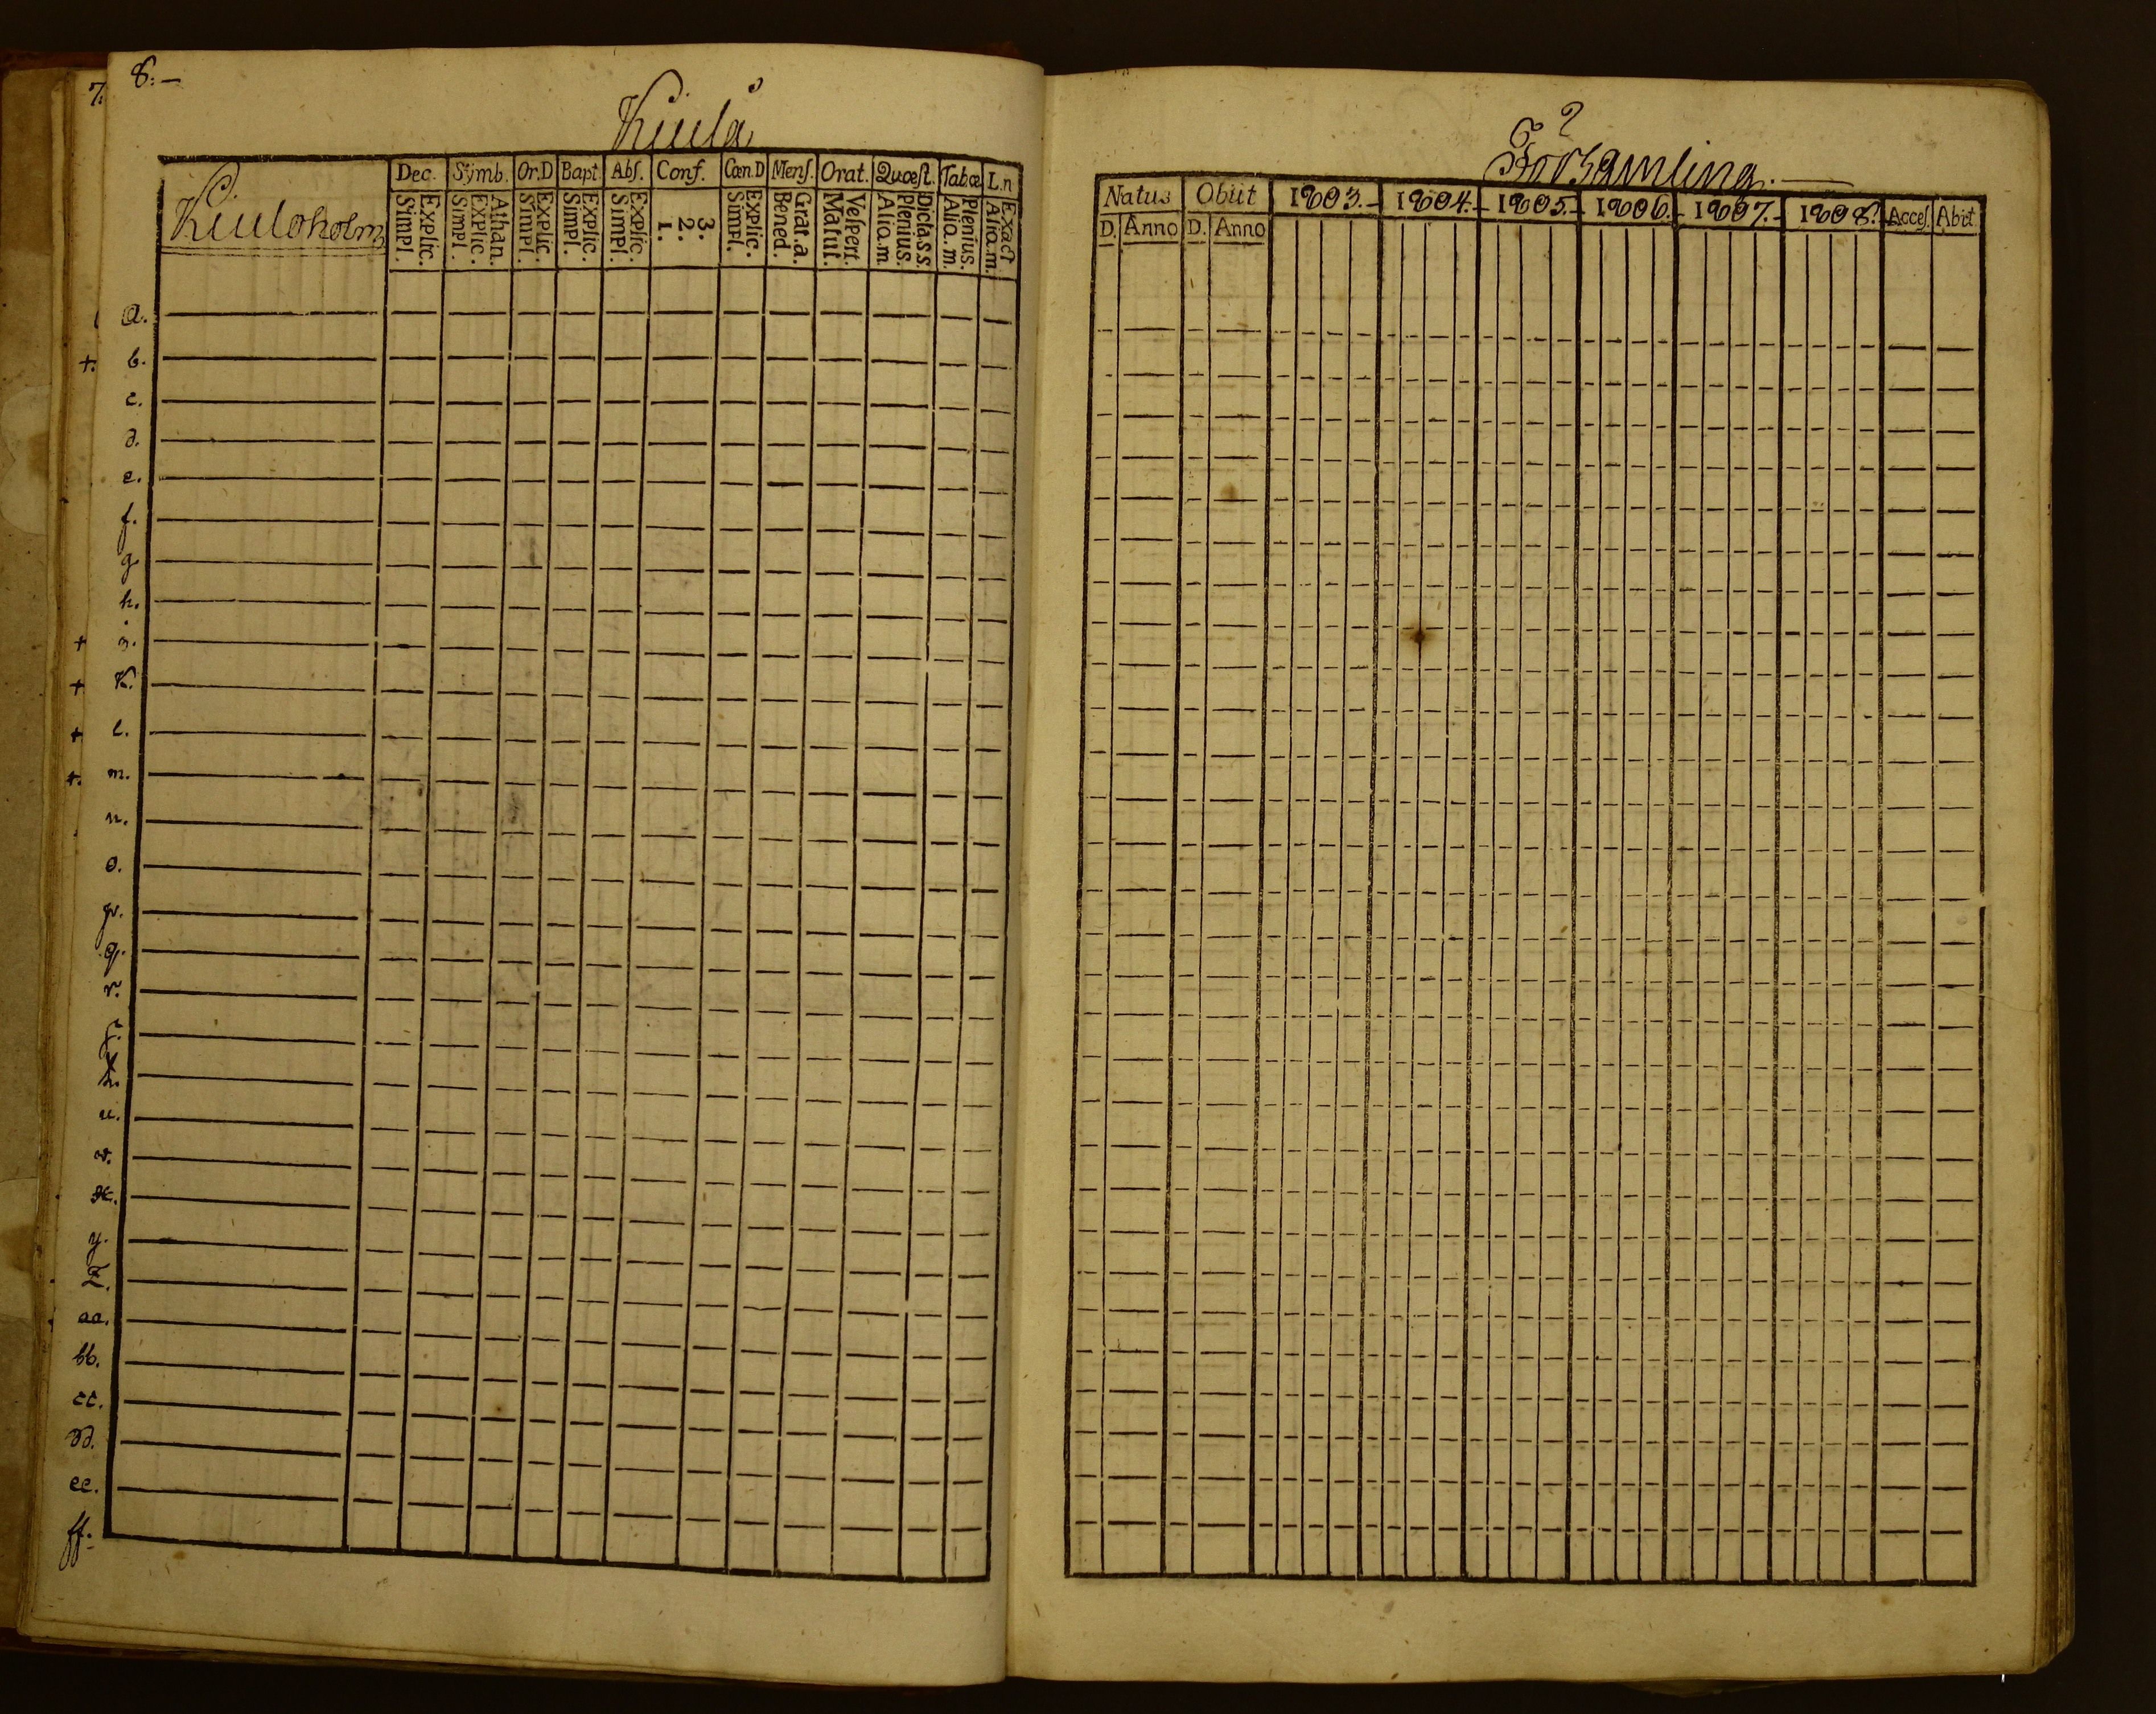 7. 8.
Kiula
Kiuloholm
Dec. Symb. Or.D Bapt. Abſ. Conf. Cœn.D Menſ. Orat. Quœſt. Tab.œ L.n
Explic. Simpl.
Athan. Explic. Simpl.
Explic. Simpl.
Explic. Simpl.
Explic. Simpl.
3. 2. 1.
Explic. Simpl.
Grat.a. Bened.
Veſpert. Matut.
Dicta.s.s. Plenius. Alio.m.
Plenius. Alia.m.
Exact Alio.m.
a.
+. b.
c.
d.
e.
f.
g.
h.
+ i.
+ k.
+ l.
+. m.
n.
o.
p.
q.
r.
s.
t.
u.
v.
x.
y.
z.
aa.
bb.
cc.
dd.
ee.
ff.
Församling.
Natus Obiit 1803. 1804. 1805. 1806. 1807. 1808. Acceſ. Abit.
D. Anno D. Anno